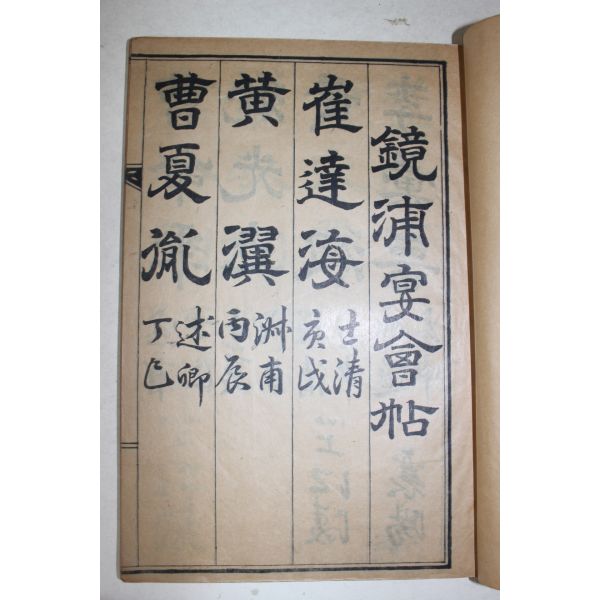 鏡浦宴會帖
崔達海 士清 庚戌
黃瀷 淋甫 丙辰
曹夏胤 述卿 丁巳